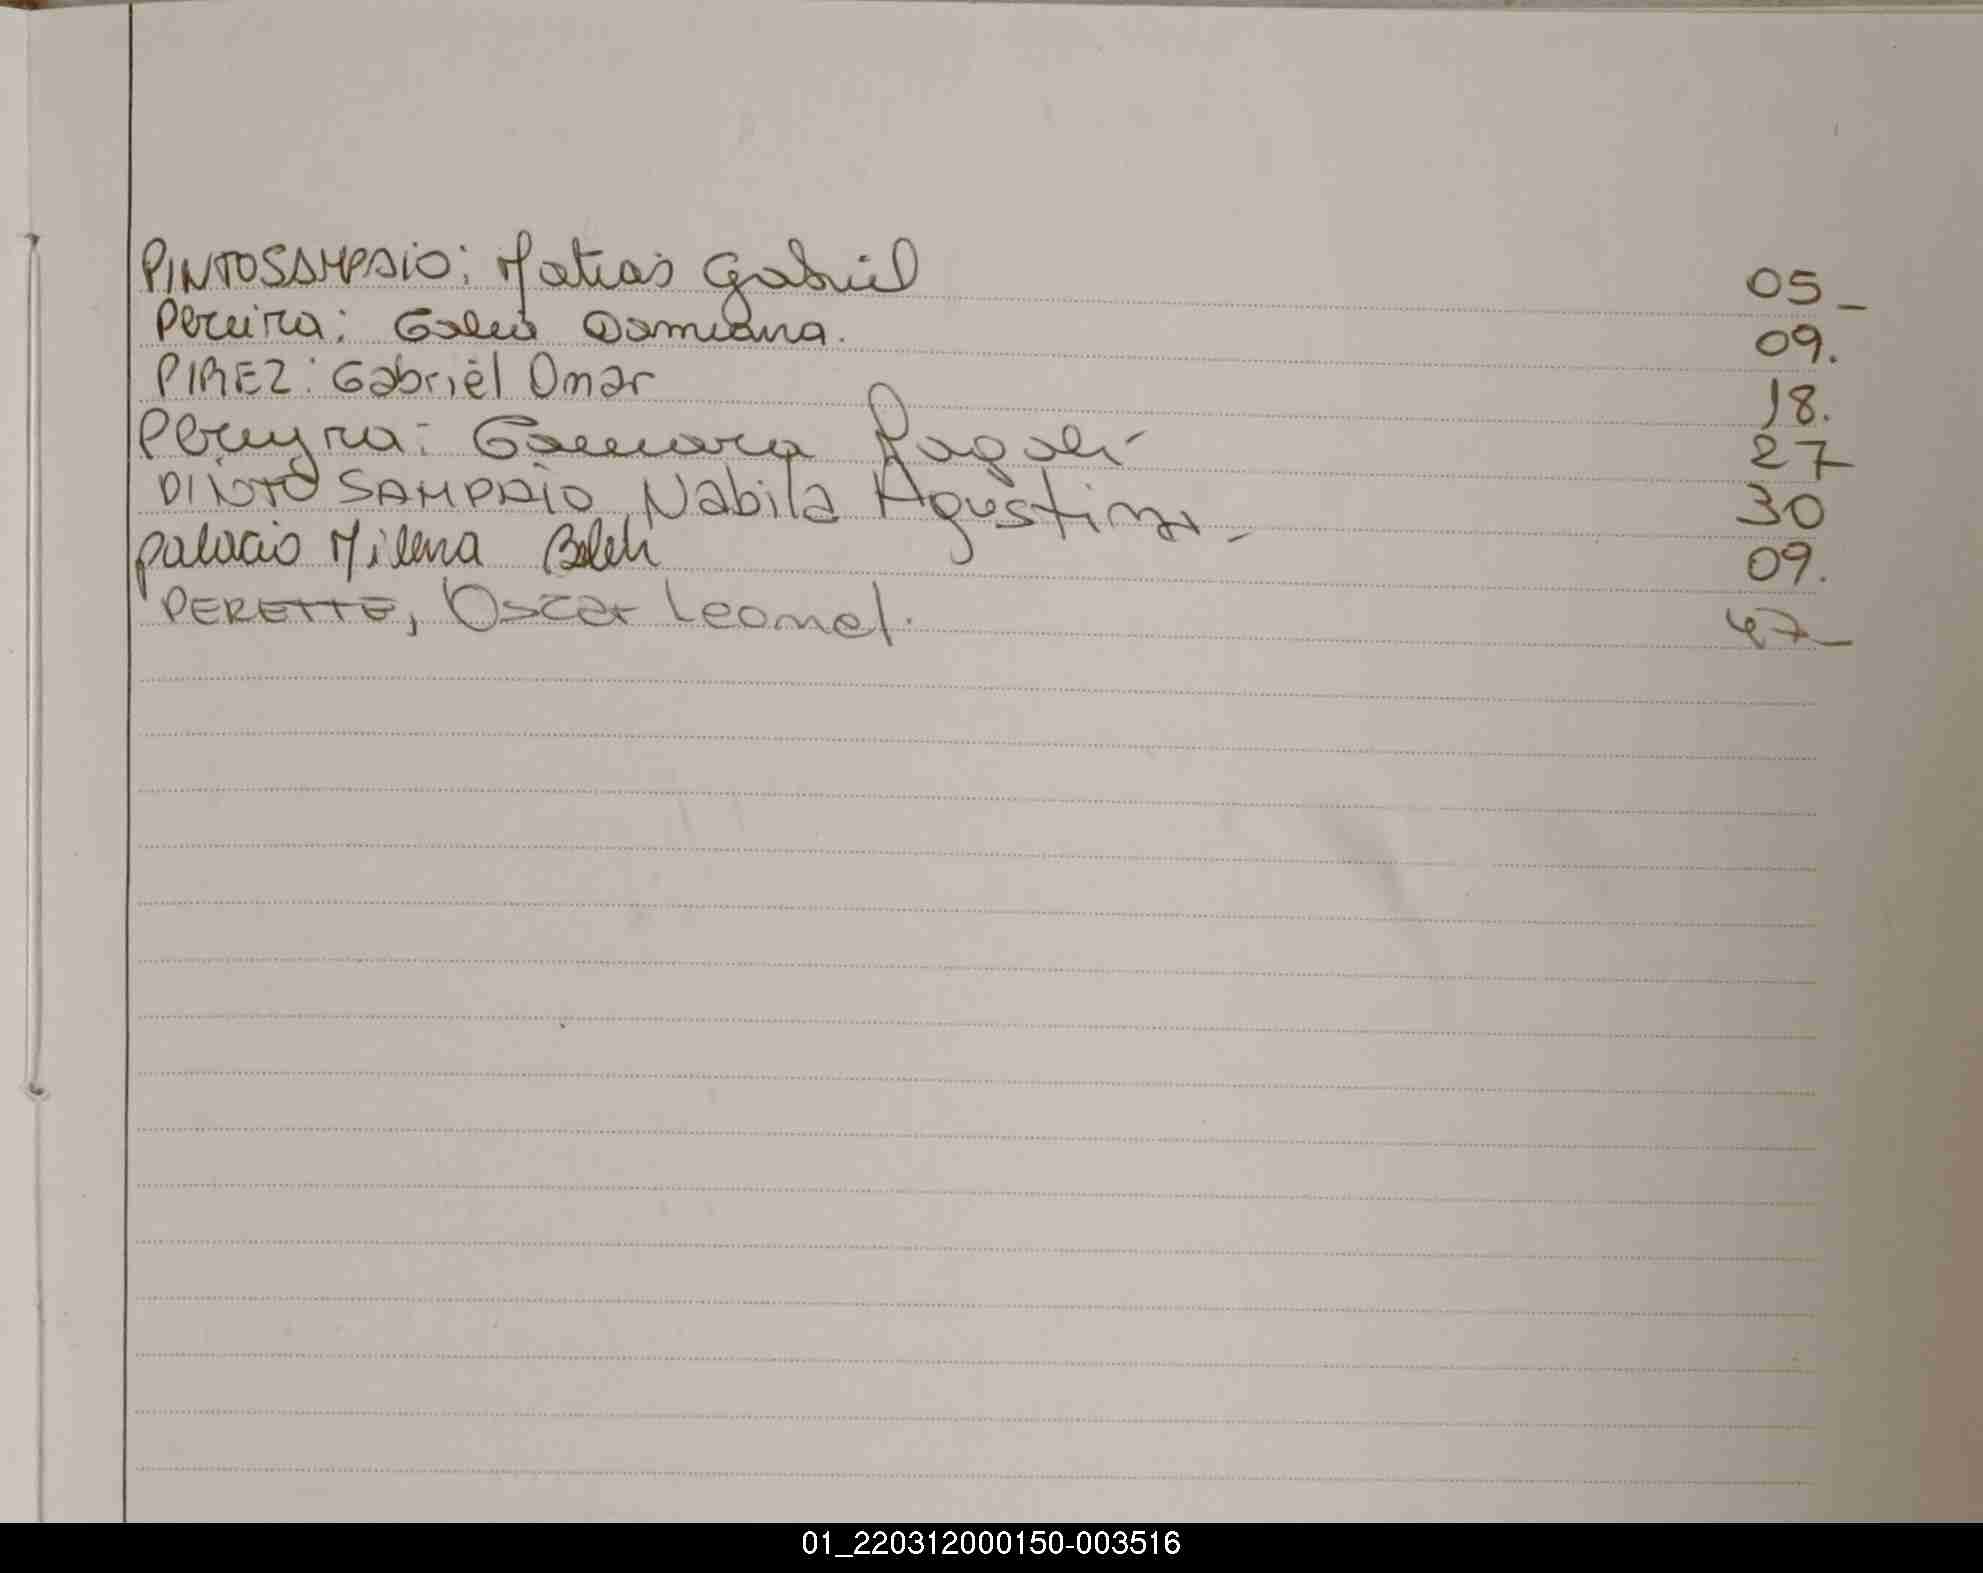 PINTO SAMPAIO: Matias Gabriel 05_
Pereira: Damiana. 09.
PIREZ: Gabriel Omar 18.
Pereyra: Magali 27_
PINTO SAMPAIO Nabila Agustina_ 30
palacio Milena Belen 09.
PERETTE, Oscar Leonel. 47_
01_220312000150-003516